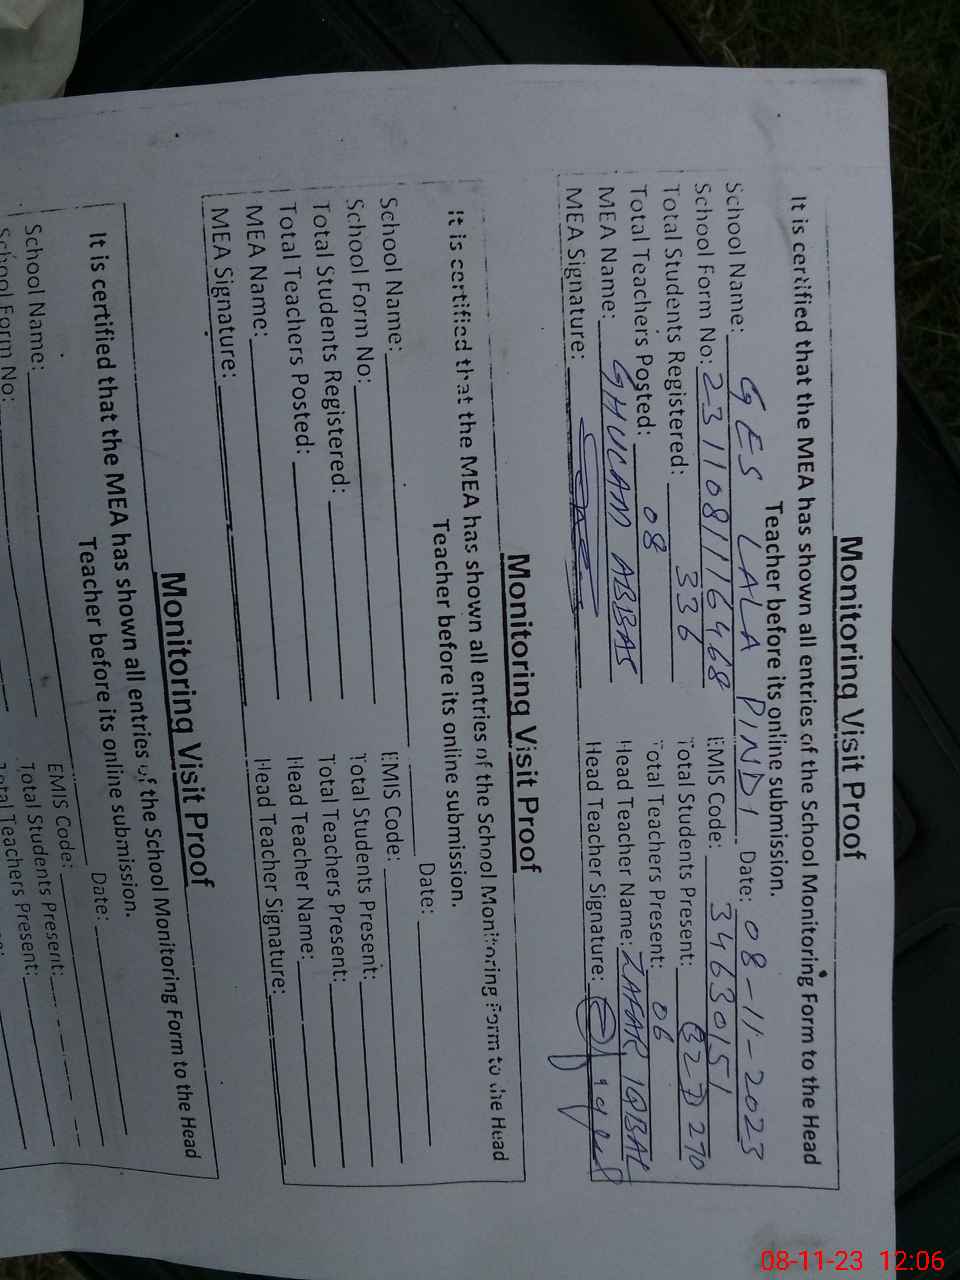 Monitoring Visit Proof
It is certified that the MEA has shown all entries of the School Monitoring Form to the Head
Teacher before its online submission.
School Name: GES LALA PINDI Date: 08-11-2023
School Form No: 2311081116468 EMIS Code: 34630151
Total Students Registered: 336 Total Students Present: 270
Total Teachers Posted: 08 Total Teachers Present: 06
MEA Name: GHULAM ABBAS Head Teacher Name: ZAFAR IQBAL
MEA Signature: Head Teacher Signature:
Monitoring Visit Proof
It is certified that the MEA has shown all entries of the School Monitoring Form to the Head
Teacher before its online submission.
School Name: Date:
School Form No: EMIS Code:
Total Students Registered: Total Students Present:
Total Teachers Posted: Total Teachers Present:
MEA Name: Head Teacher Name:
MEA Signature: Head Teacher Signature:
Monitoring Visit Proof
It is certified that the MEA has shown all entries of the School Monitoring Form to the Head
Teacher before its online submission.
School Name: Date:
School Form No: EMIS Code:
Total Students Present:
Total Teachers Present:
08-11-23 12:06